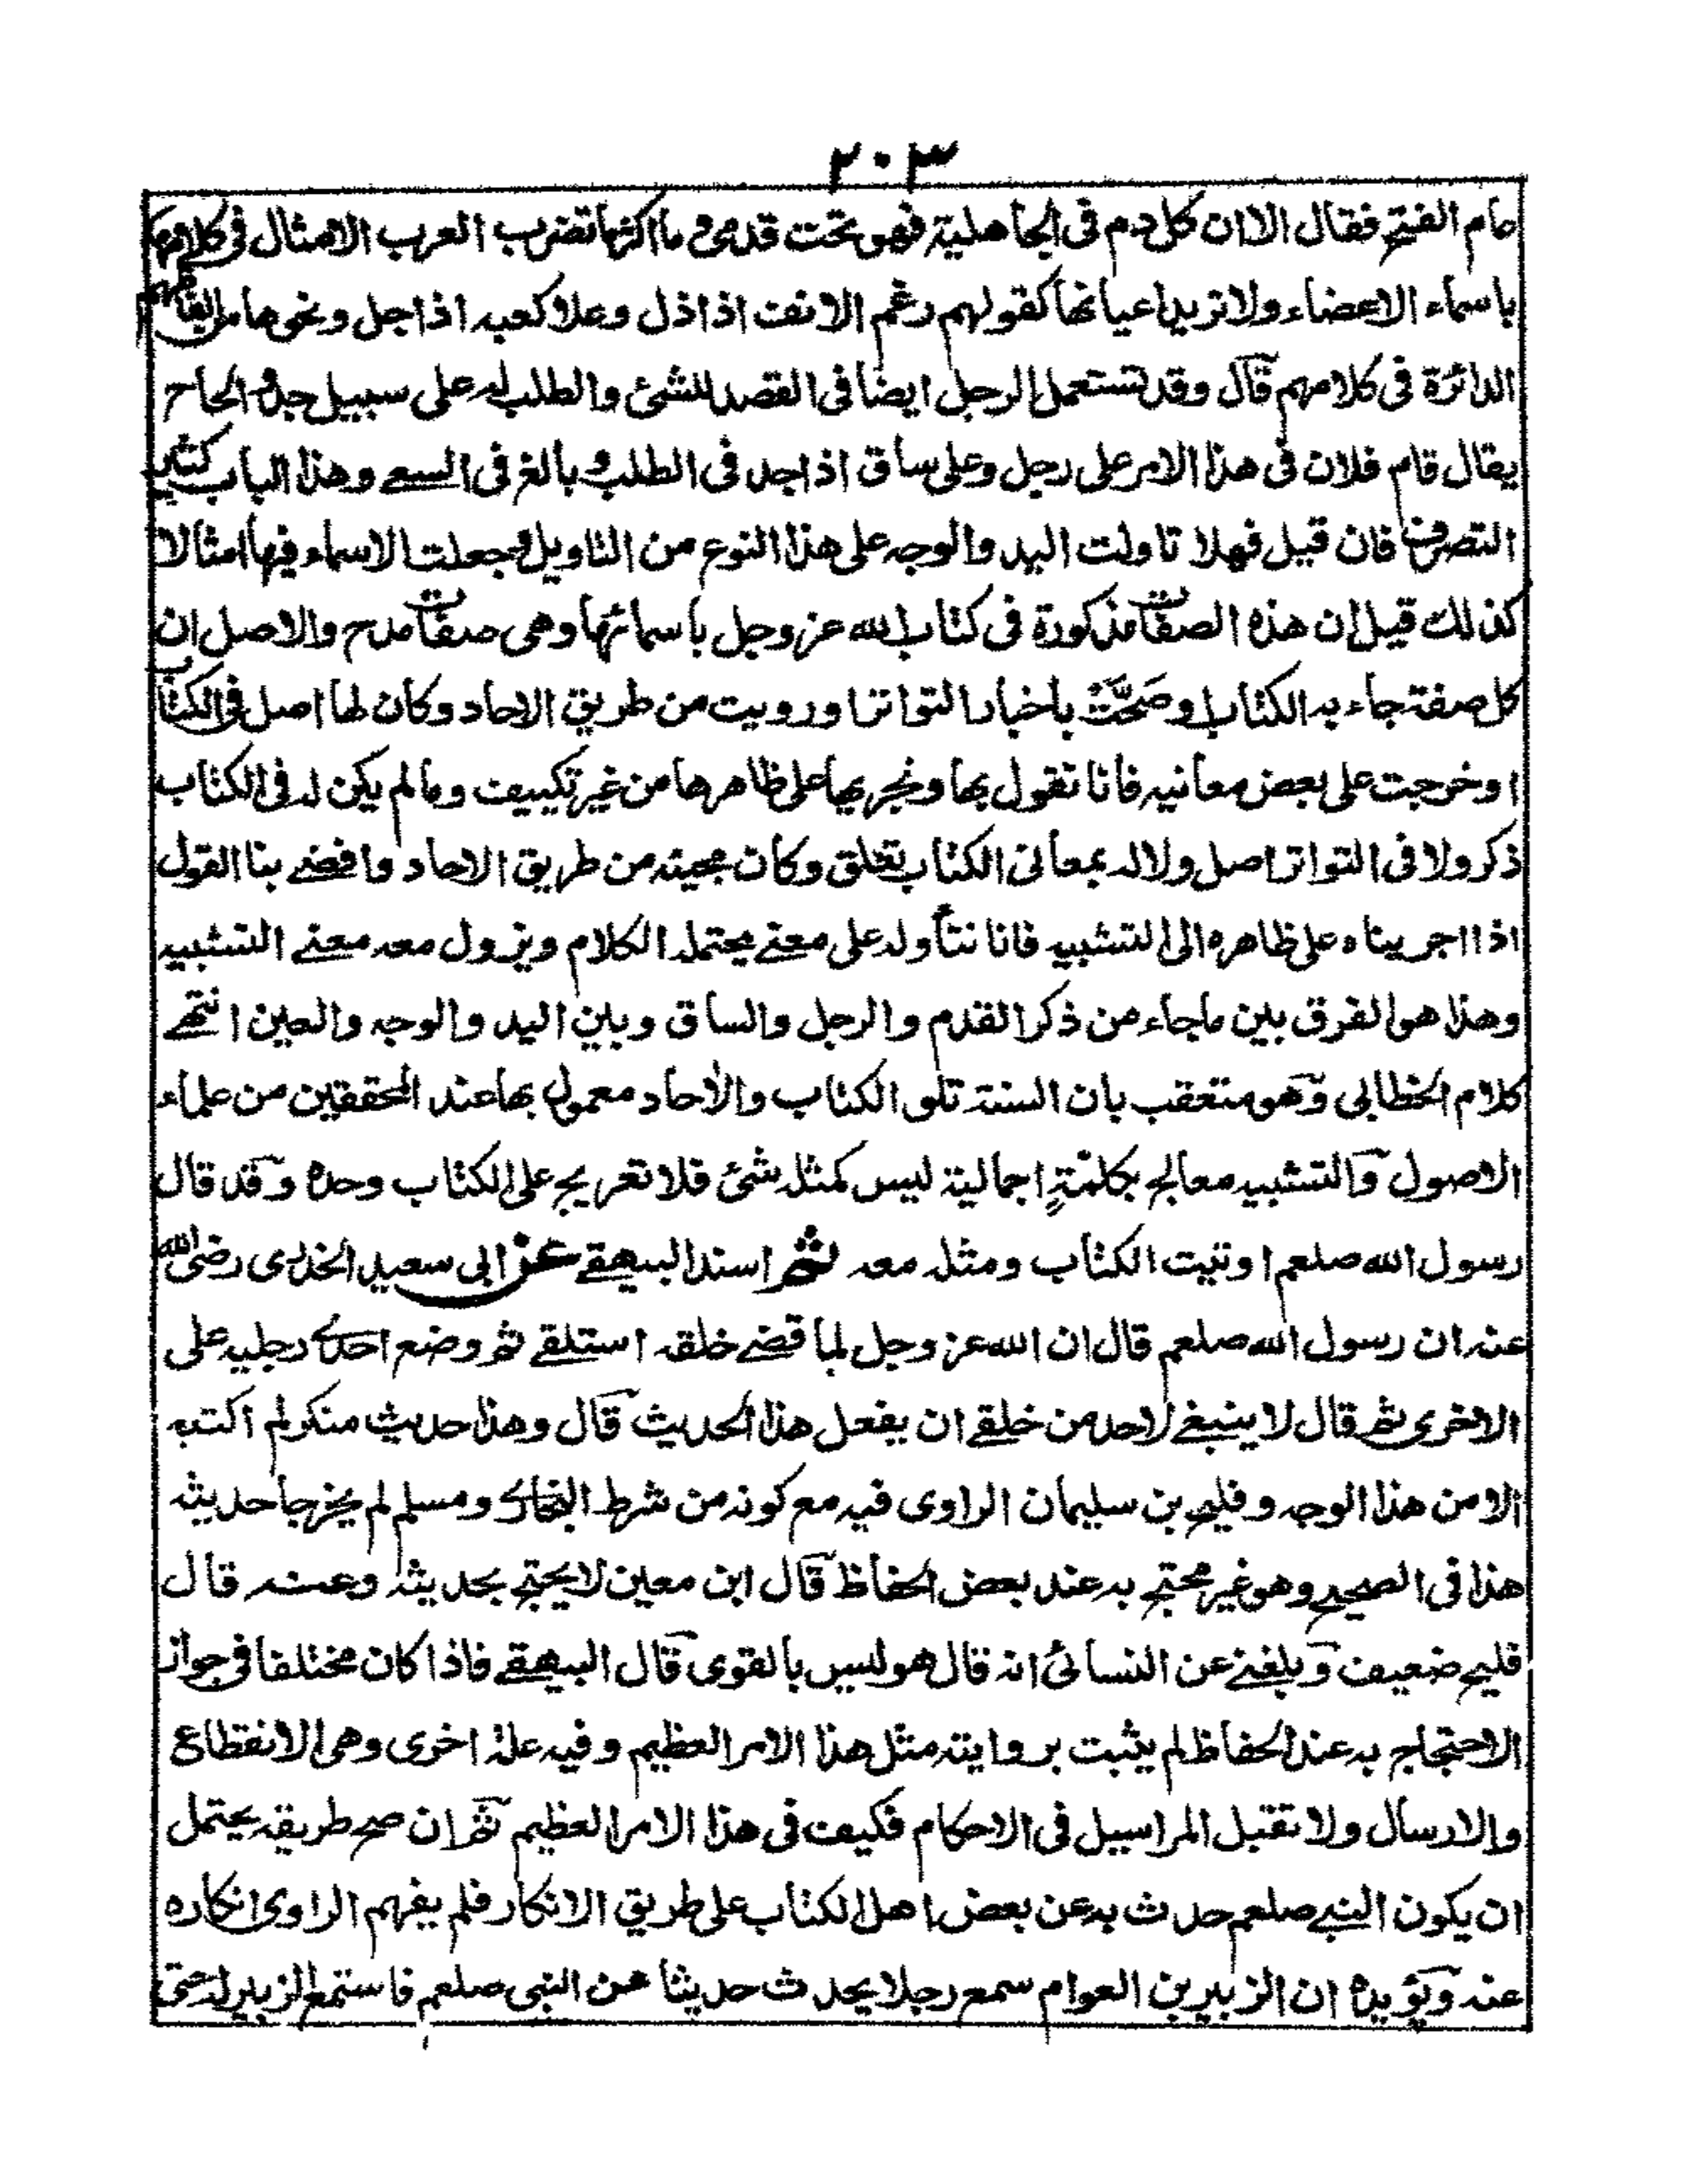 ٢٠٣
عام الفتح فقال الا ان كل دم فى الجاهلية فهو تحت قدمى وما اكثر ما تضرب العرب الامثال فى كلامها
باسماء الاعضاء ولا تريد اعيانها كقولهم رغم الانف اذا ذل وعلا كعبه اذا جل ونحوها من الفاظهم
الدائرة فى كلامهم قال وقد تستعمل الرجل ايضا فى القصد للشئ والطلب له على سبيل جد والحاح
يقال قام فلان فى هذا الامر على رجل وعلى ساق اذا جد فى الطلب وبالغ فى السعے وهذا الباب كثير
التصرف فان قيل فهلا تاولت اليد والوجه على هذا النوع من التاويل وجعلت الاسماء فيها امثالا
كذالك قيل ان هذه الصفات مذكورة فى كتاب الله عز وجل باسمائها وهى صفات مدح والاصل ان
كل صفة جاء به الكتاب او صحّت باخبار التواتر او رويت من طريق الاحاد وكان لها اصل فى الكتاب
او خرجت على بعض معانيه فانا نقول بها ونجريها على ظاهرها من غير تكييف وما لم يكن له فى الكتاب
ذكر ولا فى التواتر اصل ولا له بمعانى الكتاب تعلق وكان مجيئه من طريق الاحاد وافضے بنا القول
اذا اجريناه على ظاهره الى التشبيه فانا نتأوله على معنے يحتمله الكلام ويزول معه معنے التشبيه
وهذا هو الفرق بين ماجاء من ذكر القدم والرجل والساق وبين اليد والوجه والعين انتهے
كلام الخطابى وهو متعقب بان السنة تلو الكتاب والاحاد معمول بها عند المحققين من علماء
الاصول والتشبيه معالج بكلمةٍ اجمالية ليس كمثله شئ فلا تعريج على الكتاب وحده وقد قال
رسول الله صلعم اوتيت الكتاب ومثله معه ثم اسند البيهقے عن ابى سعيد الخدرى رضى الله
عنه ان رسول الله صلعم قال ان الله عز وجل لما قضے خلقه استلقے ثم وضع احدے رجليه على
الاخرى ثم قال لا ينبغے لاحد من خلقے ان يفعل هذا الحديث قال وهذا حديث منكر لم اكتبه
الا من هذا الوجه وفليح بن سليمان الراوى فيه مع كونه من شرط البخارے ومسلم لم يخرجا حديثه
هذا فى الصحيح وهو غير محتج به عند بعض الحفاظ قال ابن معين لا يحتج بحديثه وعنه قال
فليح ضعيف وبلغنے عن النسائى انه قال هو ليس بالقوى قال البيهقے فاذا كان مختلفا فى جواز
الاحتجاج به عند الحفاظ لم يثبت بروايته مثل هذا الامر العظيم وفيه علة اخرى وهى الانقطاع
والارسال ولا تقبل المراسيل فى الاحكام فكيف فى هذا الامر العظيم ثم ان صح طريقه يحتمل
ان يكون النبے صلعم حدث به عن بعض اهل الكتاب على طريق الانكار فلم يفهم الراوى انكاره
عنه ويؤيده ان الزبير بن العوام سمع رجلا يحدث حديثا عن النبى صلعم فاستمع الزبير له حتى